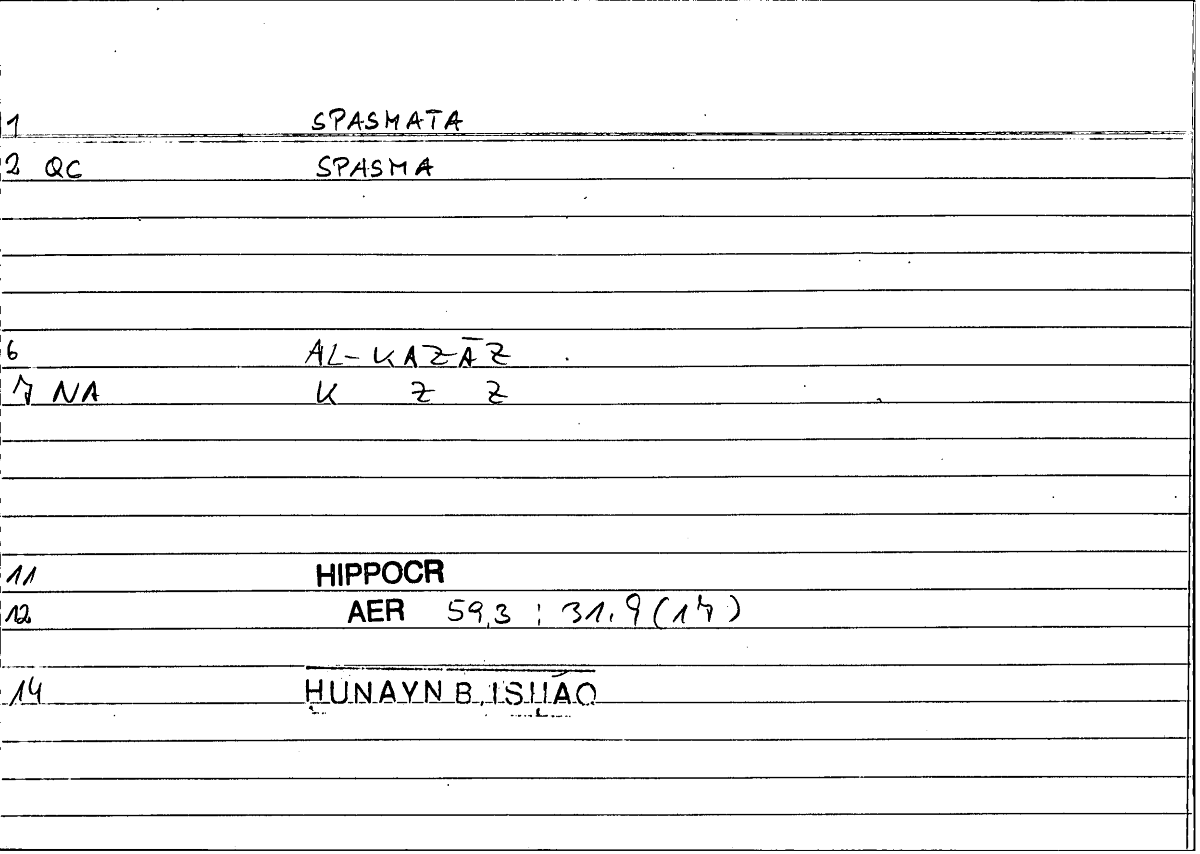 1 SPASMATA
2 QC SPASMA
6 AL-KAZĀZ
7 NA K Z Z
11 HIPPOCR
12 AER 59,3 : 31.9 (17)
14 ḤUNAYN B. ISḤĀQ